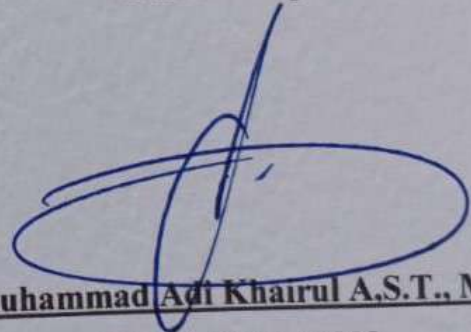 uhammad Adi Khairul A,S.T., M